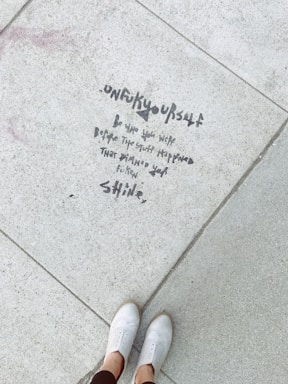 UNFUKYOURSELF
Be who you were
Before The stuff Happened
That DIMMED your
Fuken
SHINE.